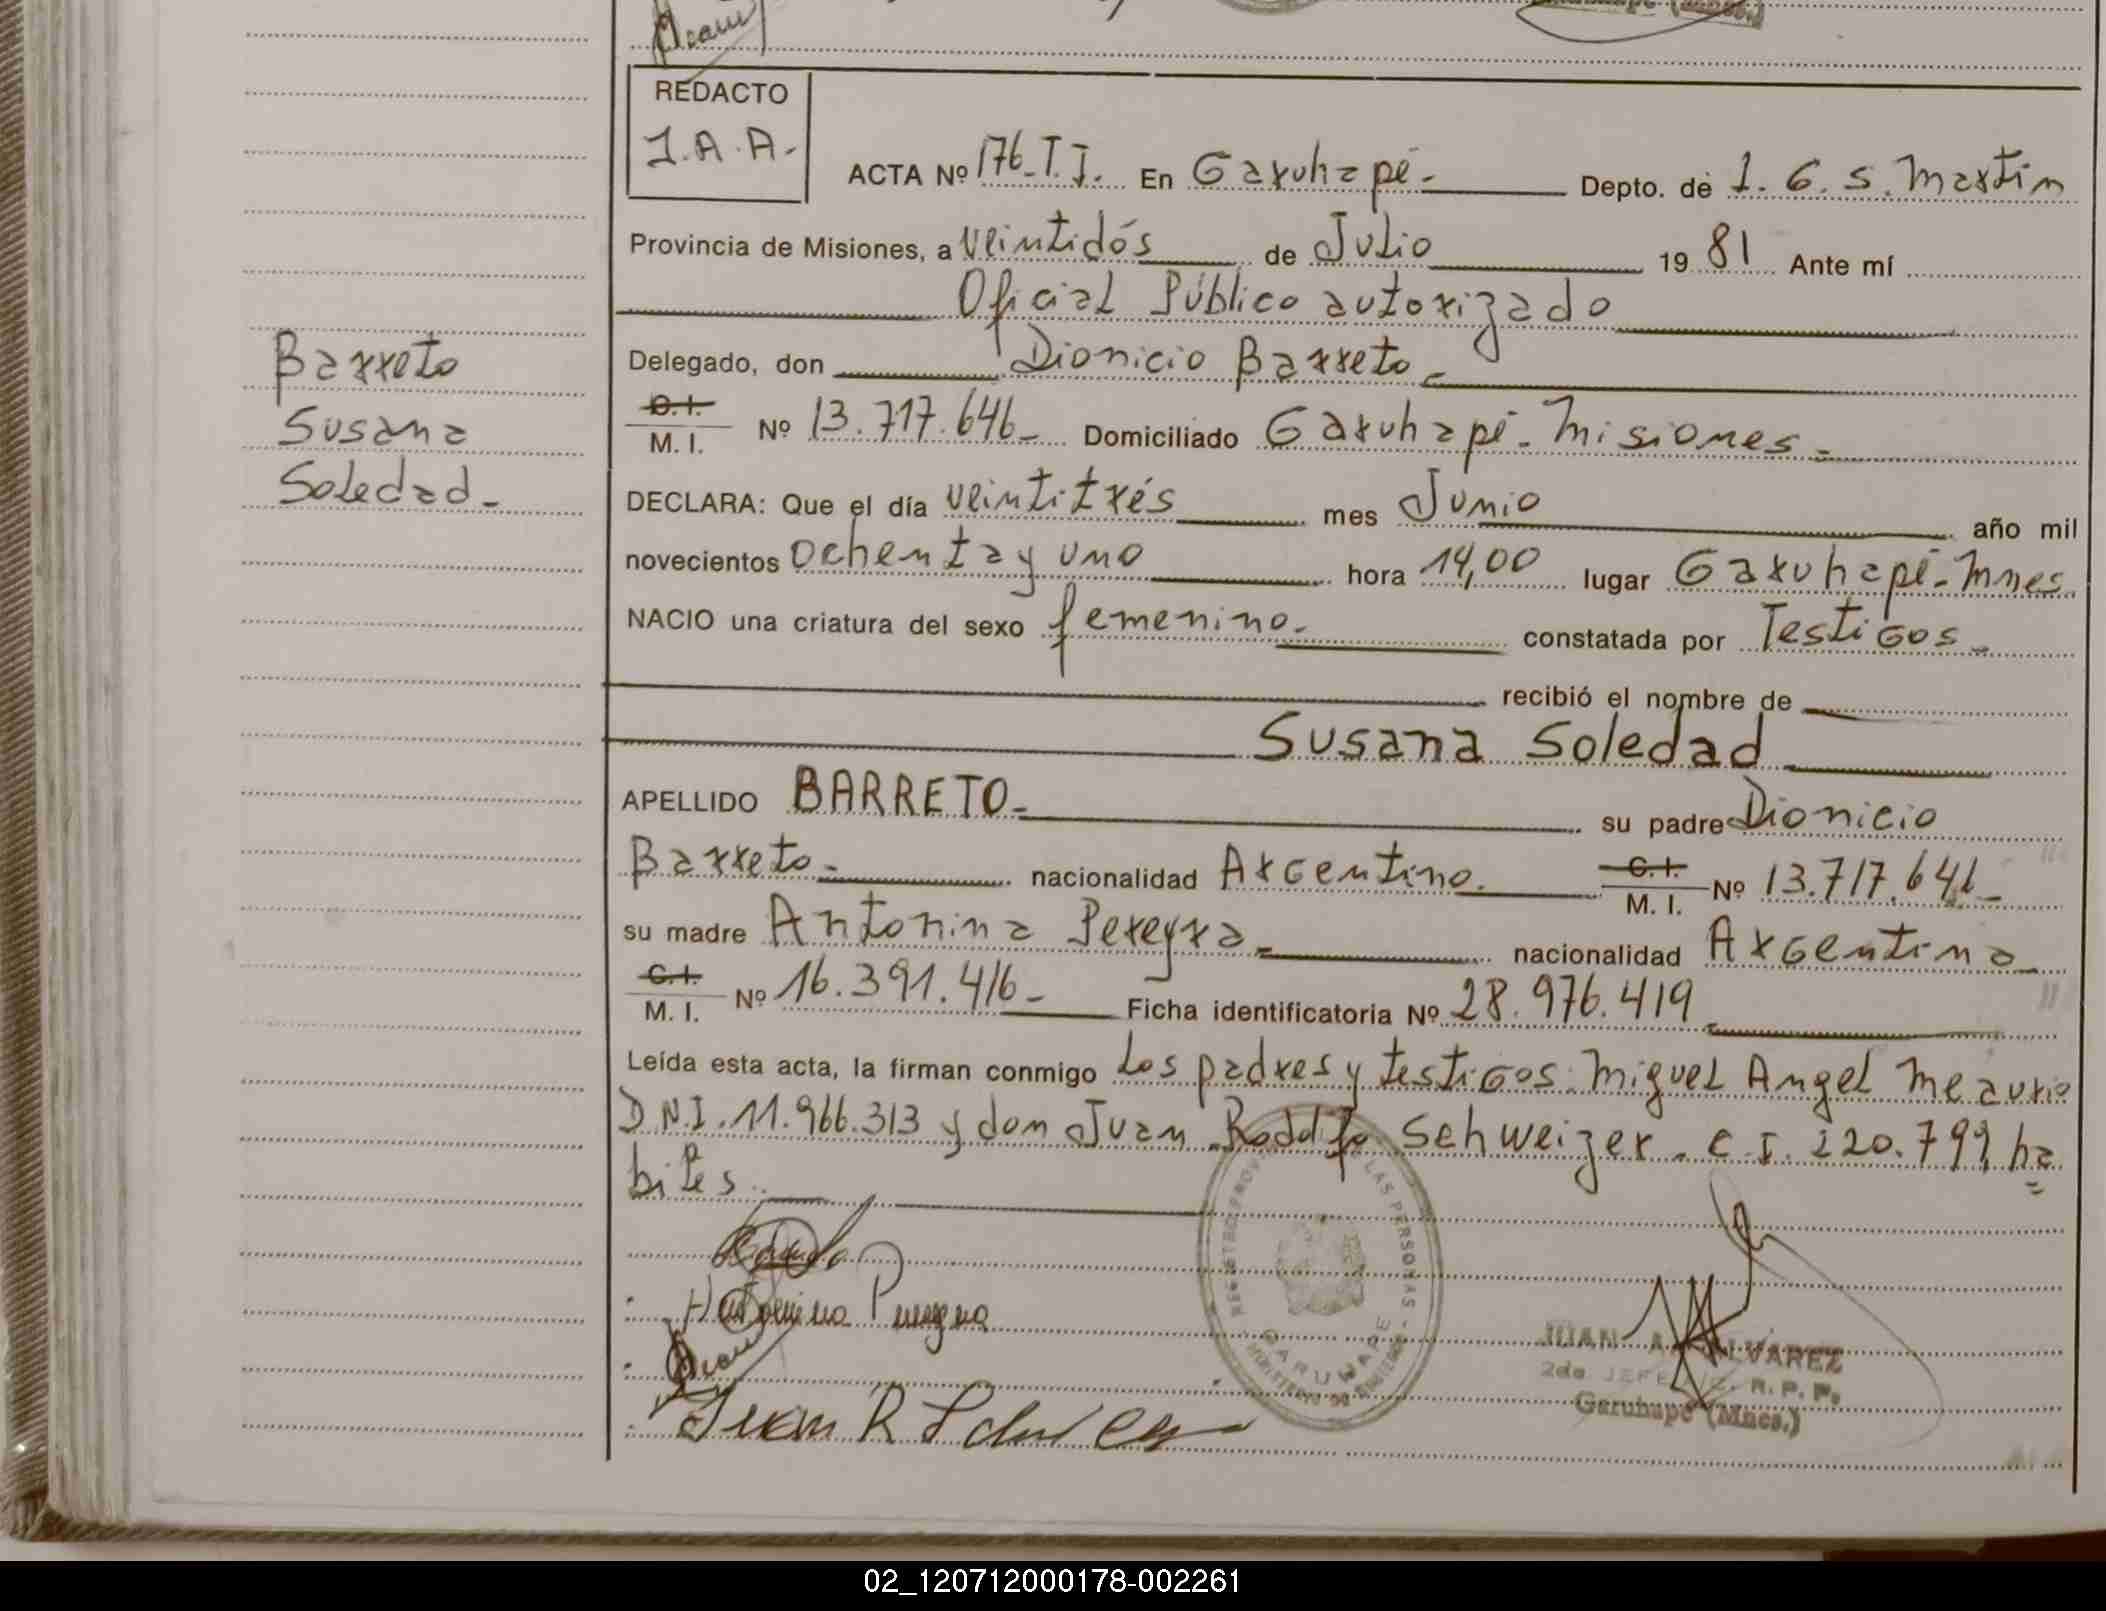 (Mnes.)
REDACTO
J.A.A.-
ACTA Nº 176-T.I. En Garuhapé.- Depto. de L. G. S. Martín
Provincia de Misiones, a veintidós de Julio 19 81 Ante mí
Oficial Público autorizado
Delegado, don Dionicio Barreto.-
C.I. M.I. Nº 13.717.646- Domiciliado Garuhapé-Misiones.-
DECLARA: Que el día veintitrés mes Junio año mil
novecientos ochenta y uno hora 14,00 lugar Garuhapé-Mnes.
NACIO una criatura del sexo femenino.- constatada por Testigos.-
recibió el nombre de
Susana Soledad
APELLIDO BARRETO.- su padre Dionicio
Barreto.- nacionalidad Argentino. C.I. M.I. Nº 13.717.646-
su madre Antonina Pereyra.- nacionalidad Argentina
C.I. M.I. Nº 16.391.416- Ficha identificatoria Nº 28.976.419
Leída esta acta, la firman conmigo los padres y testigos: Miguel Angel Meaurio
D.N.I. 11.966.313 y don Juan Rodolfo Schweizer. C.I. 220.799, há
biles.
Barreto
Susana
Soledad.-
Antonina Pereyra
Juan R Schweizer
LAS PERSONAS
GARUHAPE
JUAN A. ALVAREZ
2do JEFE R. P. P.
Garuhapé (Mnes.)
02_120712000178-002261